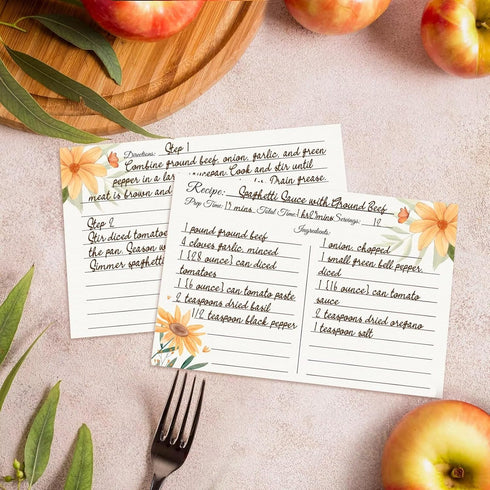 Directions: Step 1
Combine ground beef, onion, garlic, and green
pepper in a large saucepan. Cook and stir until
meat is brown and Drain grease.
Step 2
Stir diced tomatoes
the pan. Season w
Simmer spaghetti
Recipe: Spaghetti Sauce with Ground Beef
Prep Time: 15 mins Total Time: 1 hr 2 mins Servings: 12
Ingredients:
1 pound ground beef
4 cloves garlic, minced
1 (28 ounce) can diced
tomatoes
1 (16 ounce) can tomato paste
2 teaspoons dried basil
1/2 teaspoon black pepper
1 onion, chopped
1 small green bell pepper,
diced
1 (16 ounce) can tomato
sauce
2 teaspoons dried oregano
1 teaspoon salt